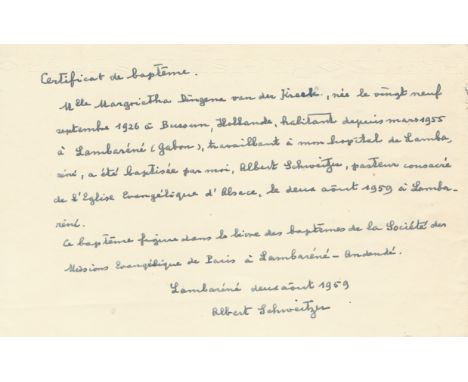 Certificat de baptême.
Mlle Margrietha Dingena van der Kreek, née le vingt neuf
septembre 1926 à Bussum, Hollande, habitant depuis mars 1955
à Lambaréné (Gabon), travaillant à mon hopital de Lamba,
réné, a été baptisée par moi, Albert Schweitzer, pasteur consacré
de l'Eglise Evangélique d'Alsace, le deux août 1959 à Lamba-
réné.
Ce baptême figure dans le livre des baptêmes de la Société des
Missions Evangélique de Paris à Lambaréné-Andendé.
Lambaréné deux août 1959
Albert Schweitzer